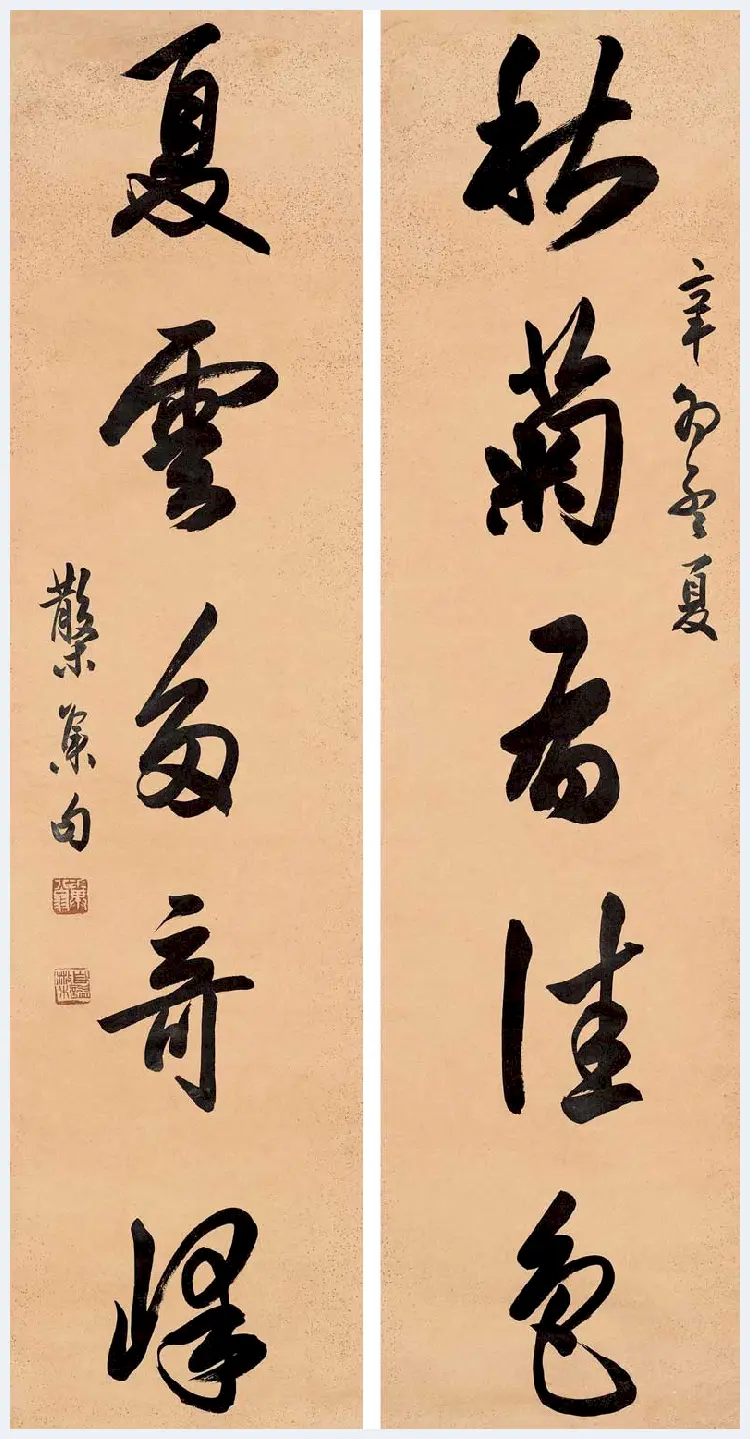 秋菊有佳色
辛卯孟夏
夏雲多奇峰
集句